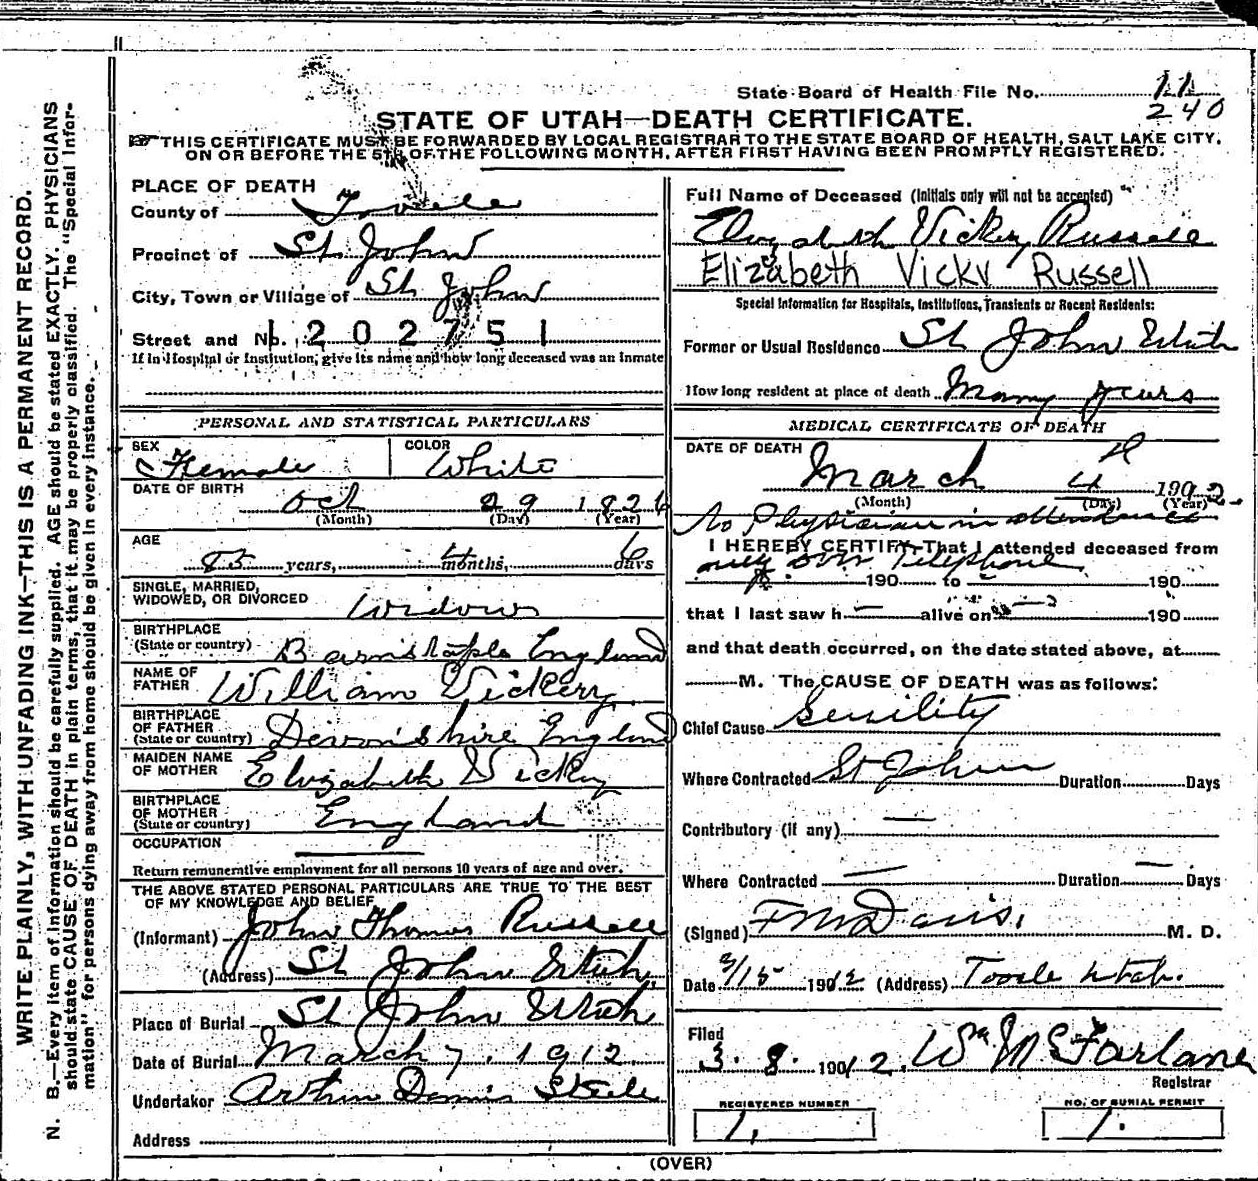 State Board of Health File No. 11
240
STATE OF UTAH—DEATH CERTIFICATE.
THIS CERTIFICATE MUST BE FORWARDED BY LOCAL REGISTRAR TO THE STATE BOARD OF HEALTH, SALT LAKE CITY,
ON OR BEFORE THE 5TH OF THE FOLLOWING MONTH, AFTER FIRST HAVING BEEN PROMPTLY REGISTERED.
WRITE PLAINLY, WITH UNFADING INK—THIS IS A PERMANENT RECORD.
N. B.—Every item of information should be carefully supplied. AGE should be stated EXACTLY. PHYSICIANS
should state CAUSE OF DEATH in plain terms, that it may be properly classified. The "Special Infor-
mation" for persons dying away from home should be given in every instance.
PLACE OF DEATH
County of Tooele
Precinct of St John
City, Town or Village of St John
Street and No. 1202751
If in Hospital or Institution, give its name and how long deceased was an inmate
PERSONAL AND STATISTICAL PARTICULARS
SEX Female
COLOR White
DATE OF BIRTH Oct 29 1826
(Month) (Day) (Year)
AGE
85 years, 4 months, 6 days
SINGLE, MARRIED,
WIDOWED, OR DIVORCED Widow
BIRTHPLACE
(State or country) Barnstaple England
NAME OF
FATHER William Vickery
BIRTHPLACE
OF FATHER
(State or country) Devonshire England
MAIDEN NAME
OF MOTHER Elizabeth Vickry
BIRTHPLACE
OF MOTHER
(State or country) England
OCCUPATION
Return remunerative employment for all persons 10 years of age and over.
THE ABOVE STATED PERSONAL PARTICULARS ARE TRUE TO THE BEST
OF MY KNOWLEDGE AND BELIEF
(Informant) John Thomas Russell
(Address) St John Utah.
Place of Burial St John Utah
Date of Burial March 7. 1912
Undertaker Arthur Dennis Steele
Address
Full Name of Deceased (Initials only will not be accepted)
Elizabeth Vickry Russell
Elizabeth Vickv Russell
Special Information for Hospitals, Institutions, Transients or Recent Residents:
Former or Usual Residence St John Utah
How long resident at place of death Many years
MEDICAL CERTIFICATE OF DEATH
DATE OF DEATH
March 4 1902
(Month) (Day) (Year)
No Physician in attendance
I HEREBY CERTIFY—That I attended deceased from
only over Telephone
190 to 190
that I last saw h alive on 190
and that death occurred, on the date stated above, at
M. The CAUSE OF DEATH was as follows:
Chief Cause Senility
Where Contracted St John Duration Days
Contributory (if any)
Where Contracted Duration Days
(Signed) F M Davis. M. D.
Date 3/15 1912 (Address) Tooele Utah.
Filed
3. 8. 1912. Wm McFarlane
Registrar
REGISTERED NUMBER
1,
NO. OF BURIAL PERMIT
1.
(OVER)